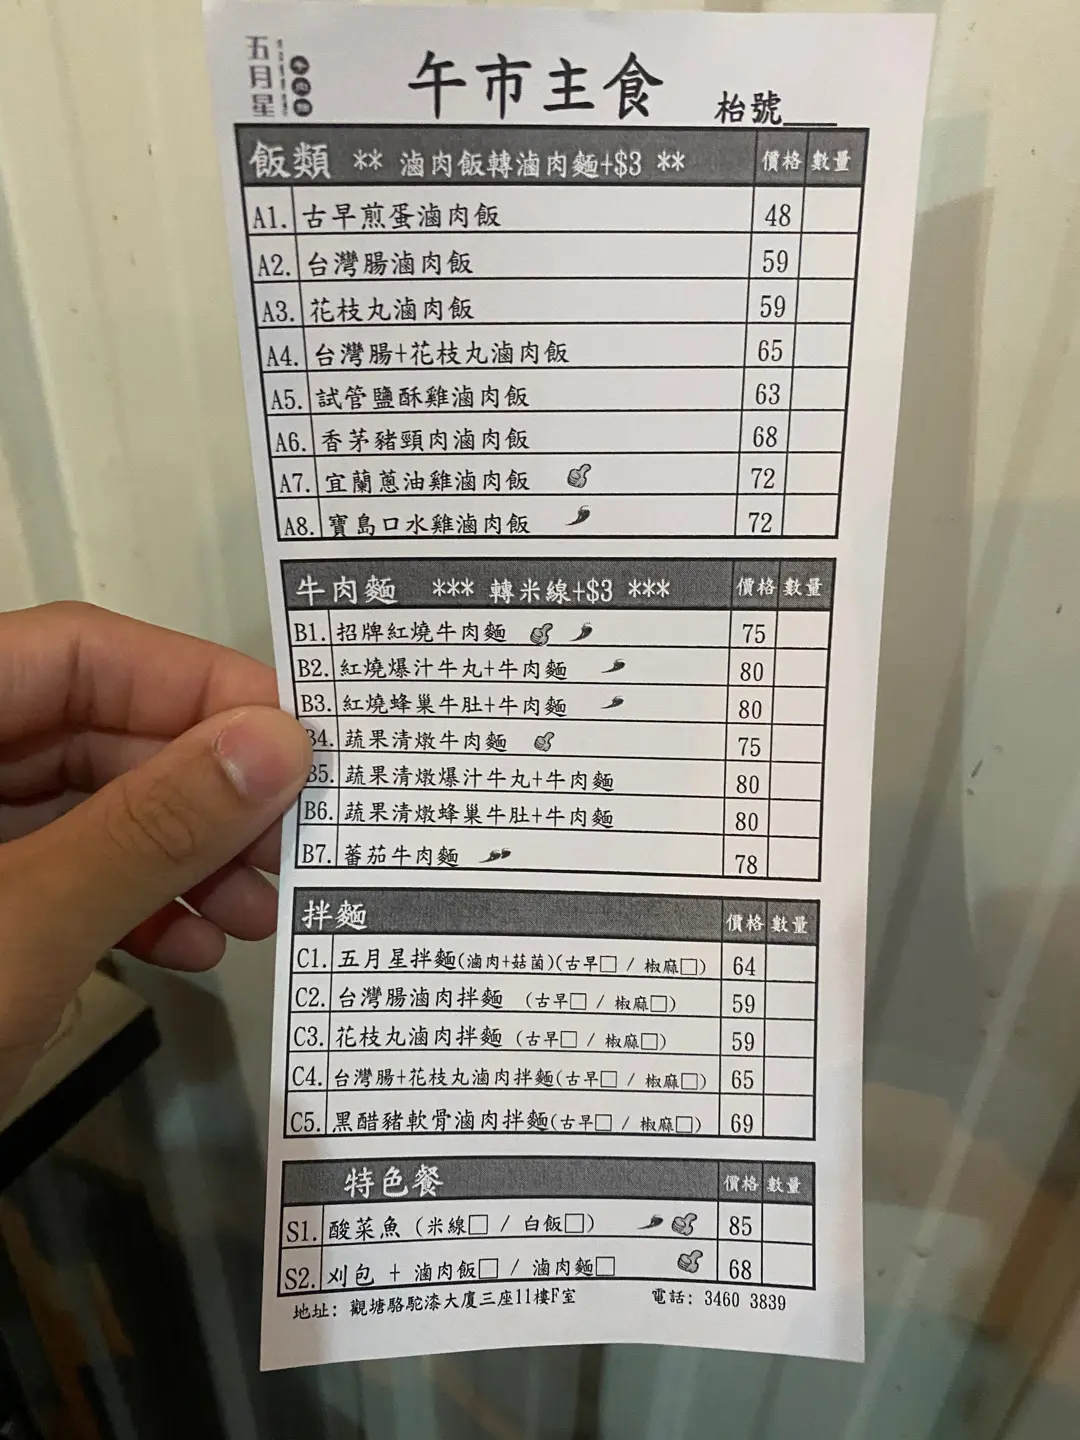 五月星
牛肉麵
午市主食
枱號___
飯類 ** 滷肉飯轉滷肉麵+$3 ** 價格 數量
A1. 古早煎蛋滷肉飯 48
A2. 台灣腸滷肉飯 59
A3. 花枝丸滷肉飯 59
A4. 台灣腸+花枝丸滷肉飯 65
A5. 試管鹽酥雞滷肉飯 63
A6. 香茅豬頸肉滷肉飯 68
A7. 宜蘭蔥油雞滷肉飯 72
A8. 寶島口水雞滷肉飯 72
牛肉麵 *** 轉米線+$3 *** 價格 數量
B1. 招牌紅燒牛肉麵 75
B2. 紅燒爆汁牛丸+牛肉麵 80
B3. 紅燒蜂巢牛肚+牛肉麵 80
B4. 蔬果清燉牛肉麵 75
B5. 蔬果清燉爆汁牛丸+牛肉麵 80
B6. 蔬果清燉蜂巢牛肚+牛肉麵 80
B7. 蕃茄牛肉麵 78
拌麵 價格 數量
C1. 五月星拌麵(滷肉+菇菌)(古早□ / 椒麻□) 64
C2. 台灣腸滷肉拌麵 (古早□ / 椒麻□) 59
C3. 花枝丸滷肉拌麵 (古早□ / 椒麻□) 59
C4. 台灣腸+花枝丸滷肉拌麵(古早□ / 椒麻□) 65
C5. 黑醋豬軟骨滷肉拌麵(古早□ / 椒麻□) 69
特色餐 價格 數量
S1. 酸菜魚 (米線□ / 白飯□) 85
S2. 刈包 + 滷肉飯□ / 滷肉麵□ 68
地址: 觀塘駱駝漆大廈三座11樓F室 電話: 3460 3839